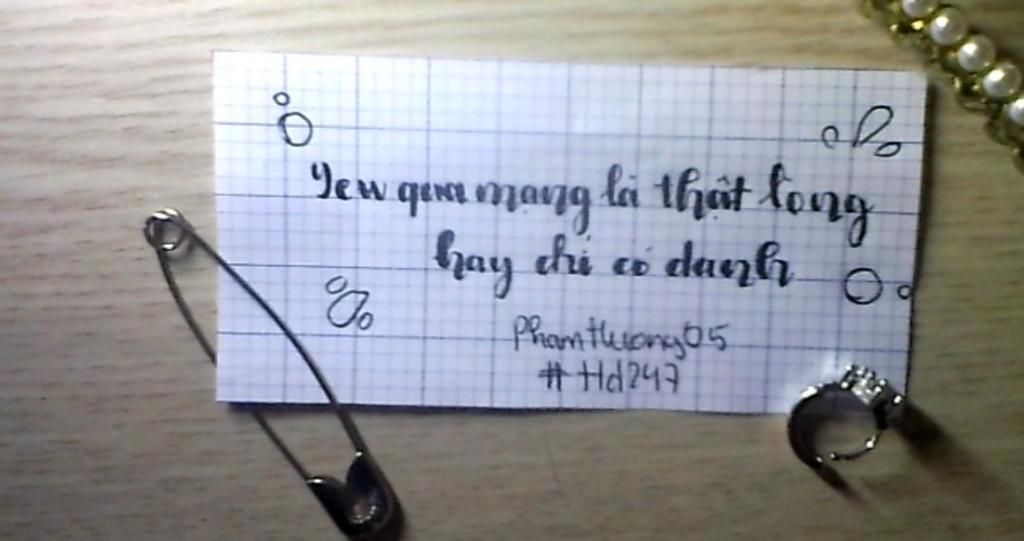 Yêu qua mạng là thật lòng
hay chỉ có danh
Phamthuong05
#Hd247